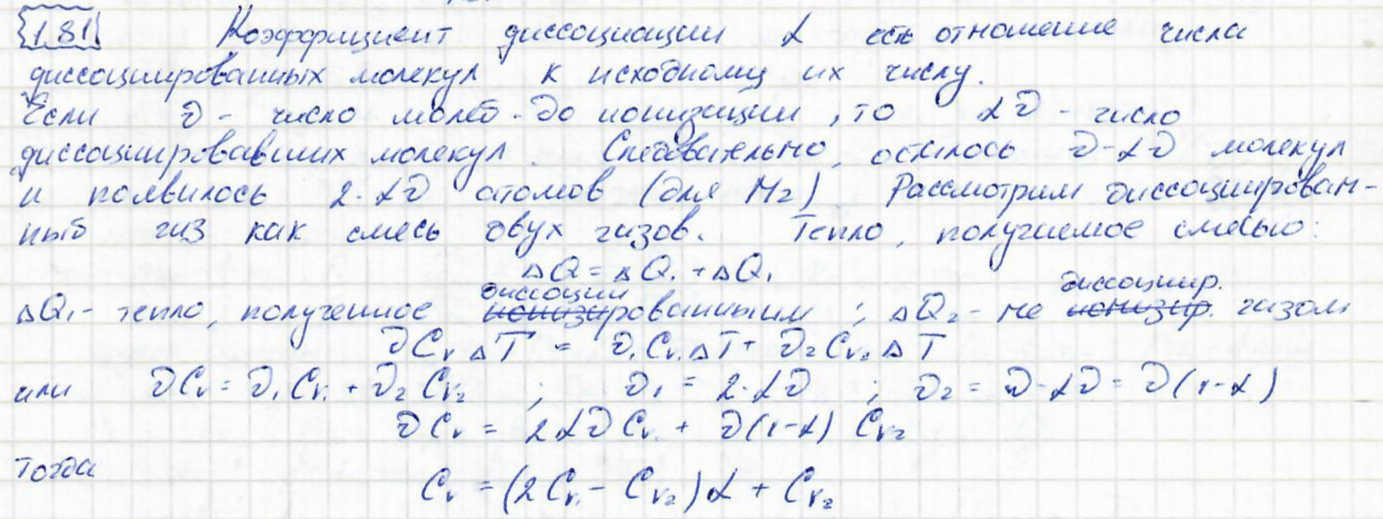 1.81 Коэффициент диссоциации α есть отношение числа
диссоциированных молекул к исходному их числу.
Если ν - число молей до ионизации, то αν - число
диссоциировавших молекул. Следовательно, осталось ν-αν молекул
и появилось 2·αν атомов (для H₂). Рассмотрим диссоциирован-
ный газ как смесь двух газов. Тепло, получаемое смесью:
ΔQ = ΔQ₁ + ΔQ₁
диссоции диссоциир.
ΔQ₁ - тепло, полученное ионизированным ; ΔQ₂ - не ионизир. газом
νCᵥΔT = ν₁Cᵥ₁ΔT + ν₂Cᵥ₂ΔT
или νCᵥ = ν₁Cᵥ₁ + ν₂Cᵥ₂ ; ν₁ = 2·αν ; ν₂ = ν-αν = ν(1-α)
νCᵥ = 2ανCᵥ₁ + ν(1-α) Cᵥ₂
Тогда
Cᵥ = (2Cᵥ₁ - Cᵥ₂)α + Cᵥ₂